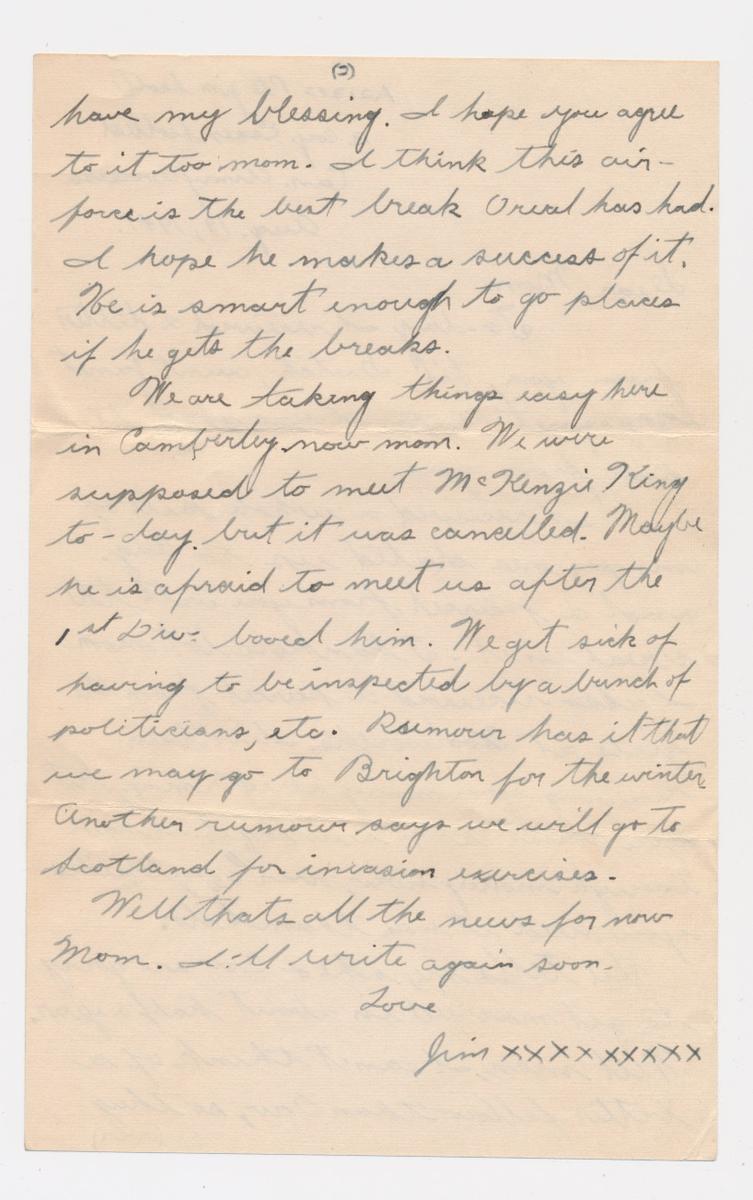 (2)
have my blessing. I hope you agree
to it too mom. I think this air-
force is the best break Oreal has had.
I hope he makes a success of it.
He is smart enough to go places
if he gets the breaks.
We are taking things easy here
in Camberley now mom. We were
supposed to meet McKenzie King
to-day, but it was cancelled. Maybe
he is afraid to meet us after the
1st Div. booed him. We get sick of
having to be inspected by a bunch of
politicians, etc. Rumour has it that
we may go to Brighton for the winter.
Another rumour says we will go to
Scotland for invasion exercises.
Well thats all the news for now
Mom. I'll write again soon.
Love
Jim xxxxxxxxx